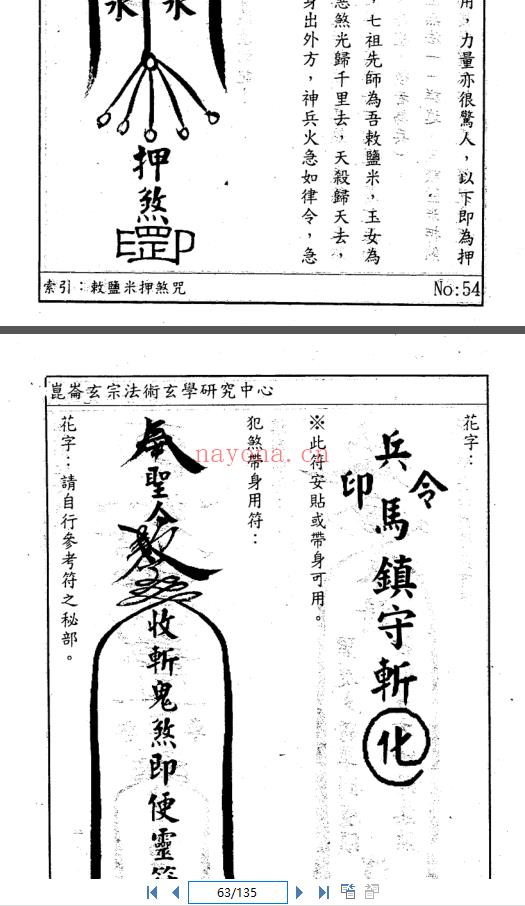 用，力量亦很驚人，以下即為押
，七祖先師為吾敕鹽米，玉女為
惡煞光歸千里去，天殺歸天去，
身出外方，神兵火急如律令，急
押煞
索引：敕鹽米押煞咒
No:54
崑崙玄宗法術玄學研究中心
花字：
令
兵馬鎮守斬化
印
※此符安貼或帶身可用。
犯煞帶身用符：
聖令
收斬鬼煞即便靈符
花字：請自行參考符之秘部。
nayona.cn
63/135